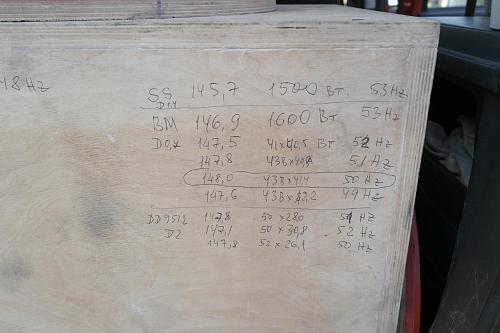 48Hz
SS 145,7 1500 Вт. 53Hz
D1,1
BM 146,9 1600 Вт 53Hz
D0,4 147,5 41x40,5 Вт 52 Hz
147,8 43Bx40,8 51 Hz
148,0 43Bx41,4 50 Hz
147,6 43Bx42,2 49 Hz
DD9512 147,8 50 x 28,0 51 Hz
D2 147,1 50 x 30,8 52 Hz
147,8 52 x 26,1 50 Hz